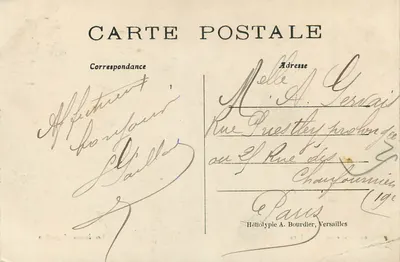 CARTE POSTALE
Correspondance
Adresse
Affectueux
bonjour
Melle A. Gervais
Rue Priestley prolongée
ou 21 Rue des
Chaufourniers
19e
Paris
Héliotypie A. Bourdier, Versailles